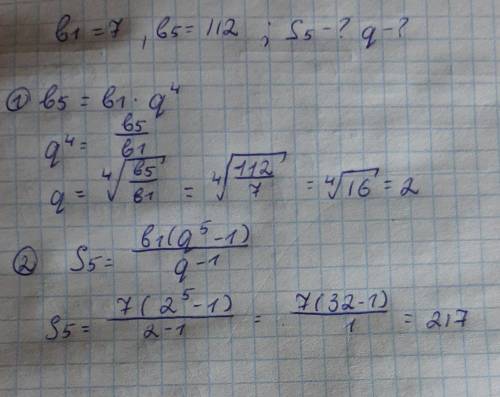 b1 = 7 , b5 = 112 ; S5 - ? q - ?
① b5 = b1 · q⁴
q⁴ = b5/b1
q = ⁴√(b5/b1) = ⁴√(112/7) = ⁴√16 = 2
② S5 = b1(q⁵ - 1)/(q - 1)
S5 = 7(2⁵ - 1)/(2 - 1) = 7(32 - 1)/1 = 217